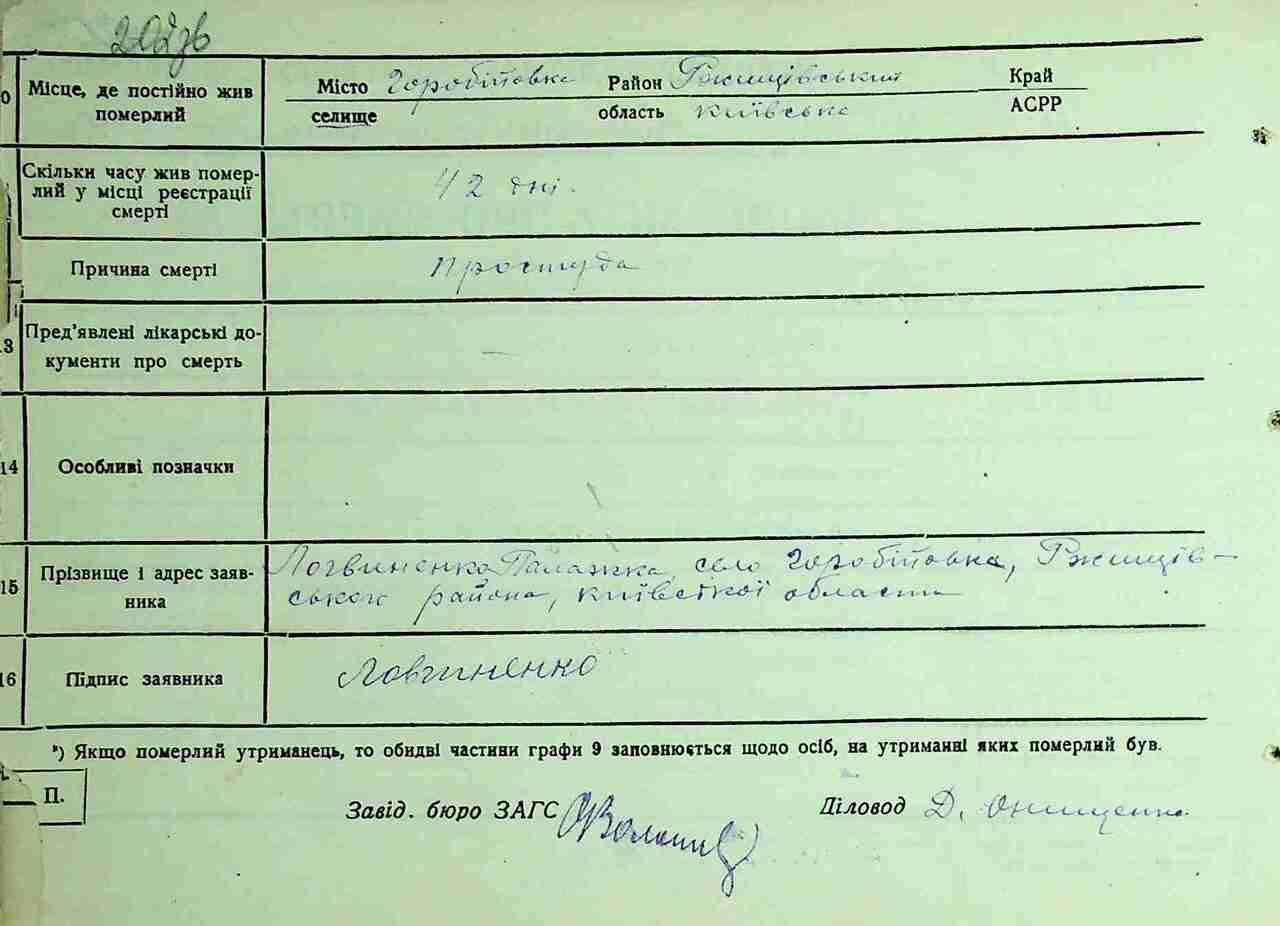 0 Місце, де постійно жив Місто Горобіївка Район Ржищівський Край
померлий селище область київська АСРР
Скільки часу жив помер-
лий у місці реєстрації 42 дні.
смерті
Причина смерті простуда
13 Пред'явлені лікарські до- —
кументи про смерть
14 Особливі позначки
15 Прізвище і адрес заяв- Логвиненко Палажка, село Горобіївка, Ржищів-
ника ськог району, київської області
16 Підпис заявника Ловгиненко
*) Якщо померлий утриманець, то обидві частини графи 9 заповнюється щодо осіб, на утриманні яких померлий був.
П.
Завід. бюро ЗАГС Діловод Д. Онищенко